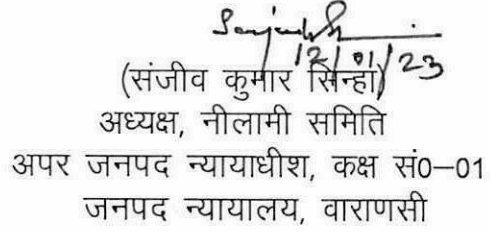 12/01/23
(संजीव कुमार सिन्हा)
अध्यक्ष, नीलामी समिति
अपर जनपद न्यायाधीश, कक्ष सं0–01
जनपद न्यायालय, वाराणसी